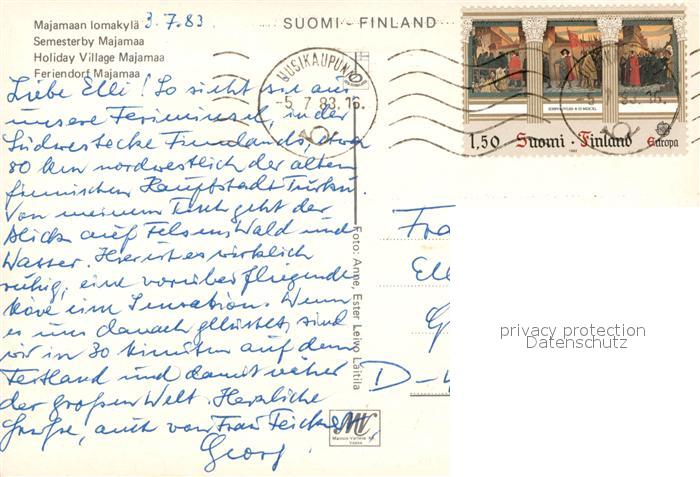 Majamaan lomakylä
Semesterby Majamaa
Holiday Village Majamaa
Feriendorf Majamaa
3.7.83
SUOMI - FINLAND
UUSIKAUPUNKI
-5.7.83.16.
1,50 Suomi · Finland Europa
Liebe Elli! So sieht sie aus
unsere Ferieninsel, in der
Südwestecke Finnlands, etwa
80 km nordwestlich der alten
finnischen Hauptstadt Turku.
Von meinem Tisch geht der
Blick auf Felsen, Wald und
Wasser. Hier ist es wirklich
ruhig, eine vorüberfliegende
Möve eine Sensation. Wenn
es uns danach gelüstet, sind
wir in 30 Minuten auf dem
Festland und damit näher
der großen Welt. Herzliche
Grüße, auch von Frau
Georg
Foto: Anne, Ester Leivo Laitila
Fra
Ell
G
D-
privacy protection
Datenschutz